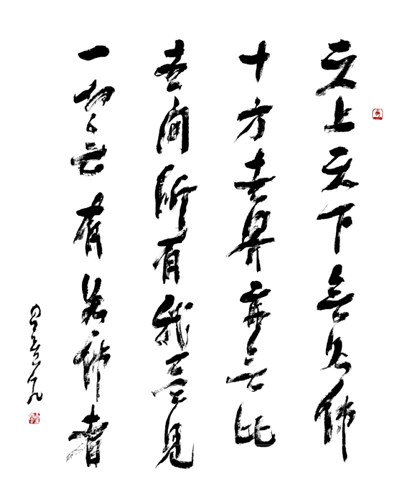 天上天下無如佛
十方世界亦無比
世間所有我盡見
一切無有如佛者